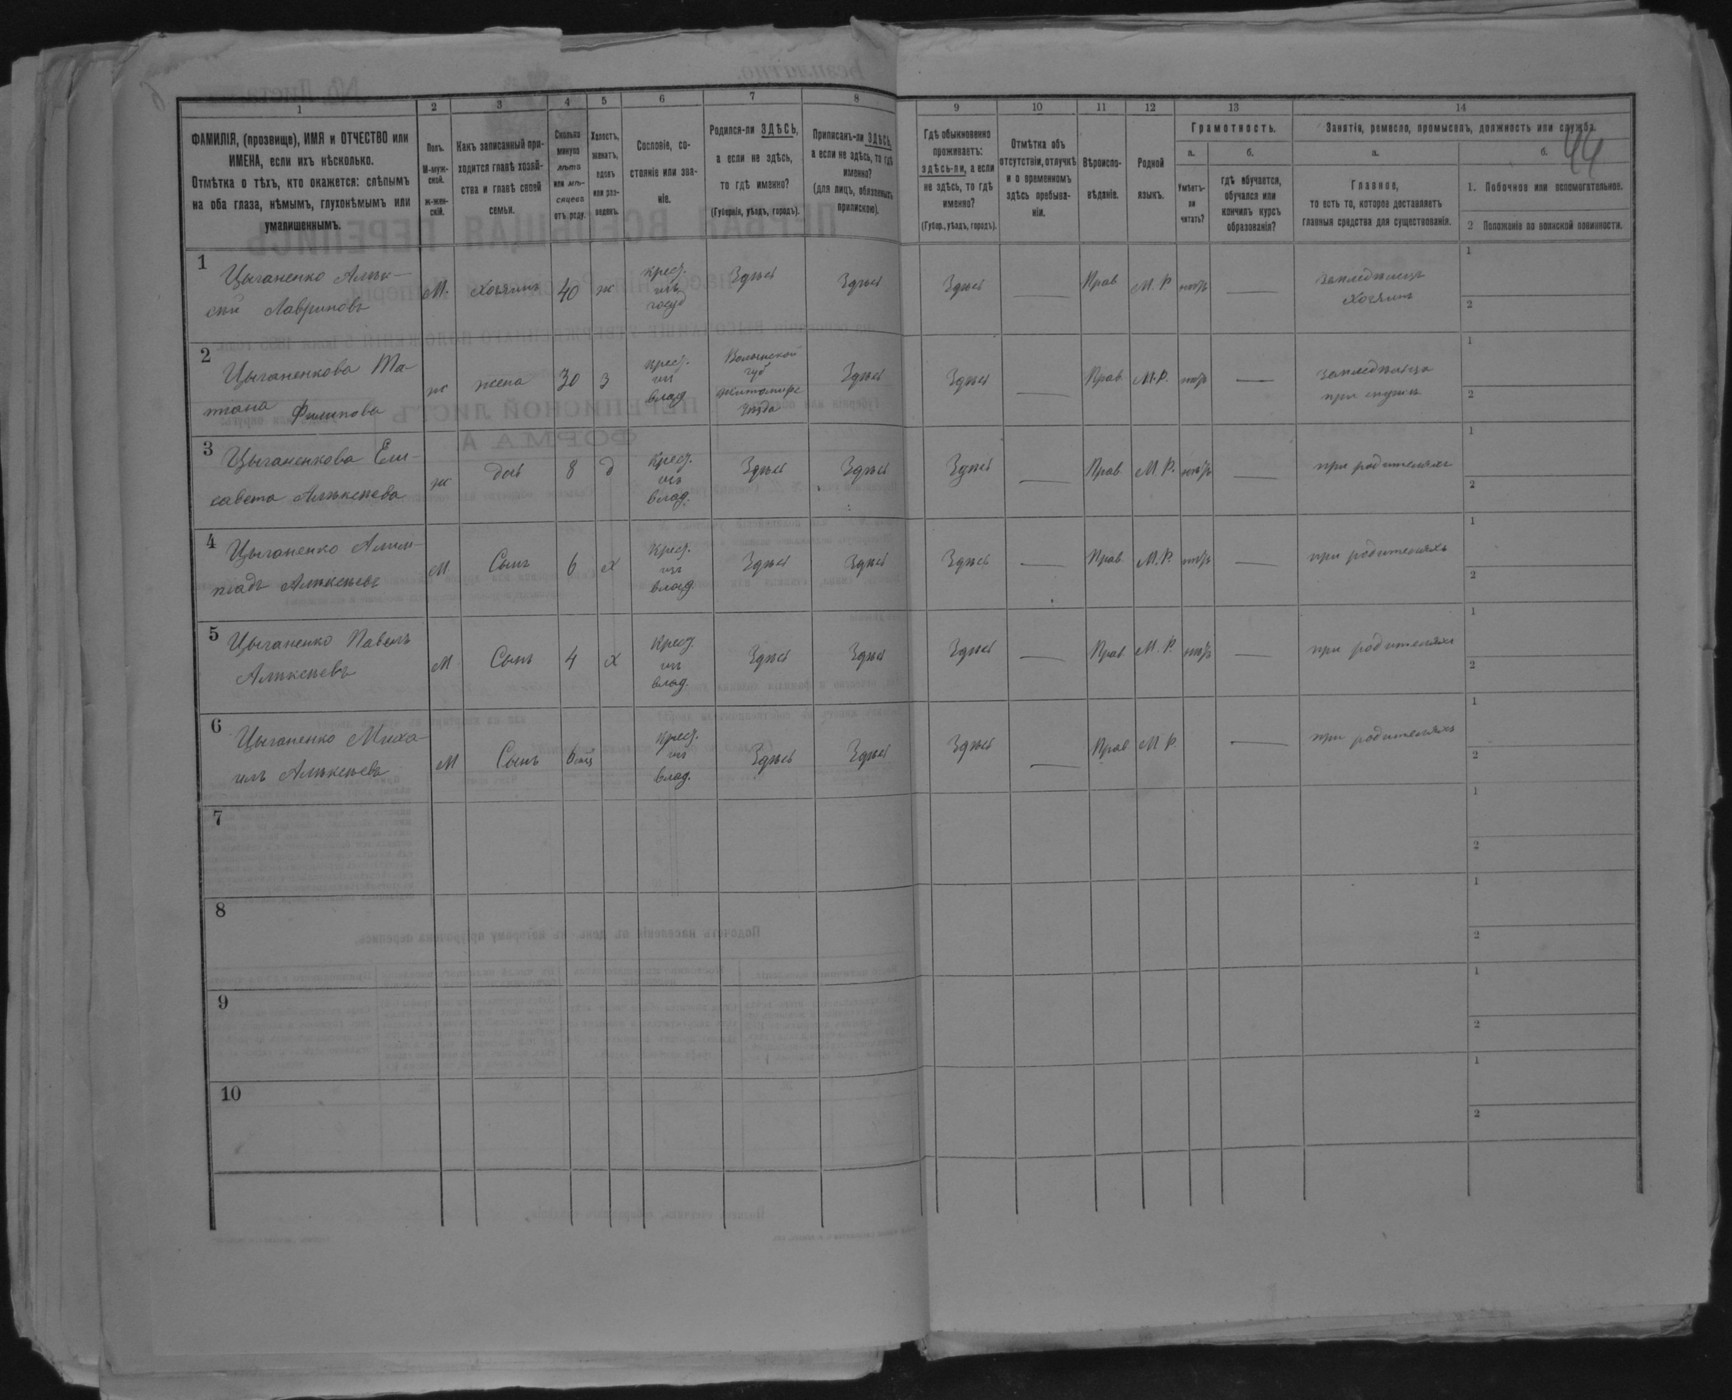 44
1
2
3
4
5
6
7
8
9
10
11
12
13
14
ФАМИЛІЯ, (прозвище), ИМЯ и ОТЧЕСТВО или
ИМЕНА, если ихъ нѣсколько.
Отмѣтка о тѣхъ, кто окажется: слѣпымъ
на оба глаза, нѣмымъ, глухонѣмымъ или
умалишеннымъ.
Полъ.
М-муж-
ской.
Ж-жен-
скій.
Какъ записанный при-
ходится главѣ хозяй-
ства и главѣ своей
семьи.
Сколько
минуло
лѣтъ
или мѣ-
сяцевъ
отъ роду.
Холостъ,
женатъ,
вдовъ
или раз-
веденъ.
Сословіе, со-
стояніе или зва-
ніе.
Родился-ли ЗДѢСЬ,
а если не здѣсь,
то гдѣ именно?
(Губернія, уѣздъ, городъ).
Приписанъ-ли ЗДѢСЬ,
а если не здѣсь, то гдѣ
именно?
(для лицъ, обязанныхъ
припискою).
Гдѣ обыкновенно
проживаетъ:
здѣсь-ли, а если
не здѣсь, то гдѣ
именно?
(Губер., уѣздъ, городъ).
Отмѣтка объ
отсутствіи, отлучкѣ
и о временномъ
здѣсь пребыва-
ніи.
Вѣроиспо-
вѣданіе.
Родной
языкъ.
Грамотность.
а.
Умѣетъ-
ли
читать?
б.
гдѣ обучается,
обучался или
кончилъ курсъ
образованія?
Занятіе, ремесло, промыселъ, должность или служба.
а.
Главное,
то есть то, которое доставляетъ
главныя средства для существованія.
б.
1. Побочное или вспомогательное.
2 Положеніе по воинской повинности.
1
Цыганенко Алѣк-
сѣй Лавриновъ
М.
хозяинъ
40
ж
крест.
изъ
госуд
Здѣсь
Здѣсь
Здѣсь
Прав
М. Р.
нѣтъ
Земледѣлецъ
Хозяинъ
1
2
2
Цыганенкова Та-
тіана Филипова
ж
жена
30
з
крест.
изъ
влад
Волынской
губ
Житомирс
уѣзда
Здѣсь
Здѣсь
Прав.
М.Р.
нѣтъ
Земледѣлица
при мужѣ
1
2
3
Цыганенкова Ели-
савета Алѣксѣева
ж
дочь
8
д
Крест.
изъ
влад.
Здѣсь
Здѣсь
Здѣсь
Прав
М Р.
нѣтъ
при родителяхъ
1
2
4
Цыганенко
Алѣксѣевъ
М
Сынъ
6
х
Крест.
изъ
влад.
Здѣсь
Здѣсь
Здѣсь
Прав
М.Р.
нѣтъ
при родителяхъ
1
2
5
Цыганенко Павелъ
Алѣксѣевъ
М
Сынъ
4
х
Крест.
изъ
влад.
Здѣсь
Здѣсь
Здѣсь
Прав
М. Р
нѣтъ
при родителяхъ
1
2
6
Цыганенко Миха-
илъ Алѣксѣевъ
М
Сынъ
6 мѣ
Крест.
изъ
влад.
Здѣсь
Здѣсь
Здѣсь
Прав
М Р.
при родителяхъ
1
2
7
1
2
8
1
2
9
1
2
10
1
2